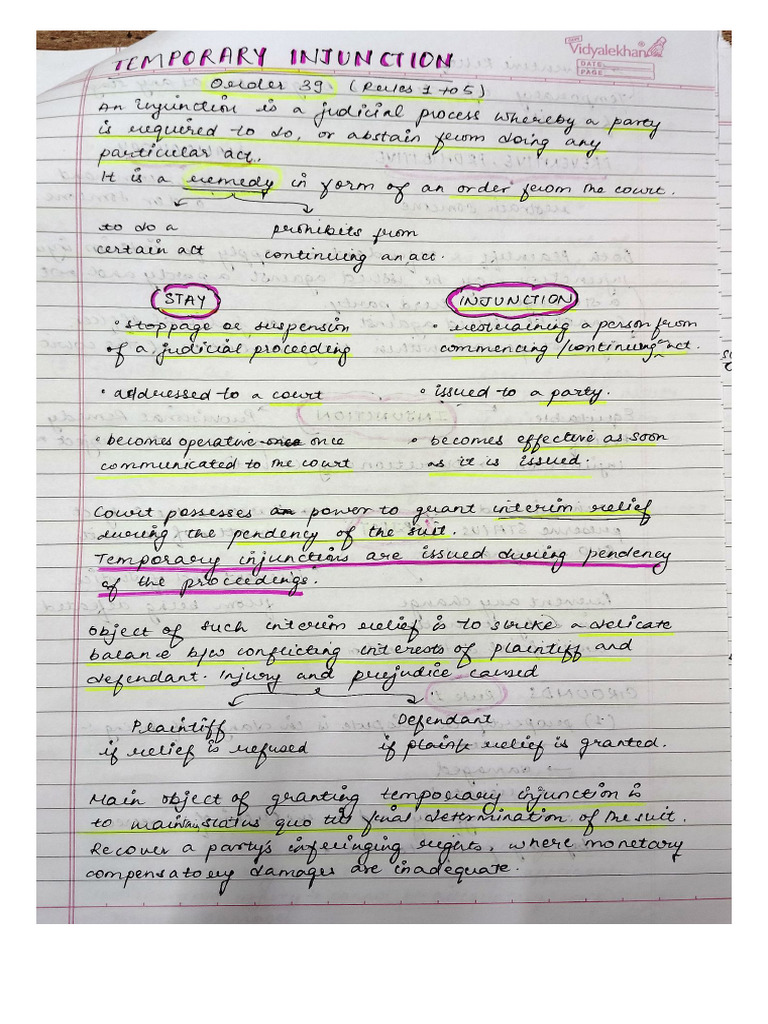 TEMPORARY INJUNCTION
Vidyalekhan
DATE:
PAGE
Order 39 (Rules 1 to 5)
An Injunction is a judicial process whereby a party
is required to do, or abstain from doing any
particular act.
It is a remedy in form of an order from the court.
to do a prohibits from
certain act continuing an act.
STAY INJUNCTION
• stoppage or suspension • restraining a person from
of a judicial proceeding commencing/continuing act.
• addressed to a court • issued to a party.
• becomes operative once once • becomes effective as soon
communicated to the court as it is issued.
Court possesses an power to grant interim relief
during the pendency of the suit.
Temporary injunctions are issued during pendency
of the proceedings.
Object of such interim relief is to strike a delicate
balance b/w conflicting interests of plaintiff and
defendant. Injury and prejudice caused
Plaintiff Defendant
if relief is refused if relief is granted.
Main object of granting temporary injunction is
to maintain status quo till final determination of the suit.
Recover a party's infringing rights, where monetary
compensatory damages are inadequate.